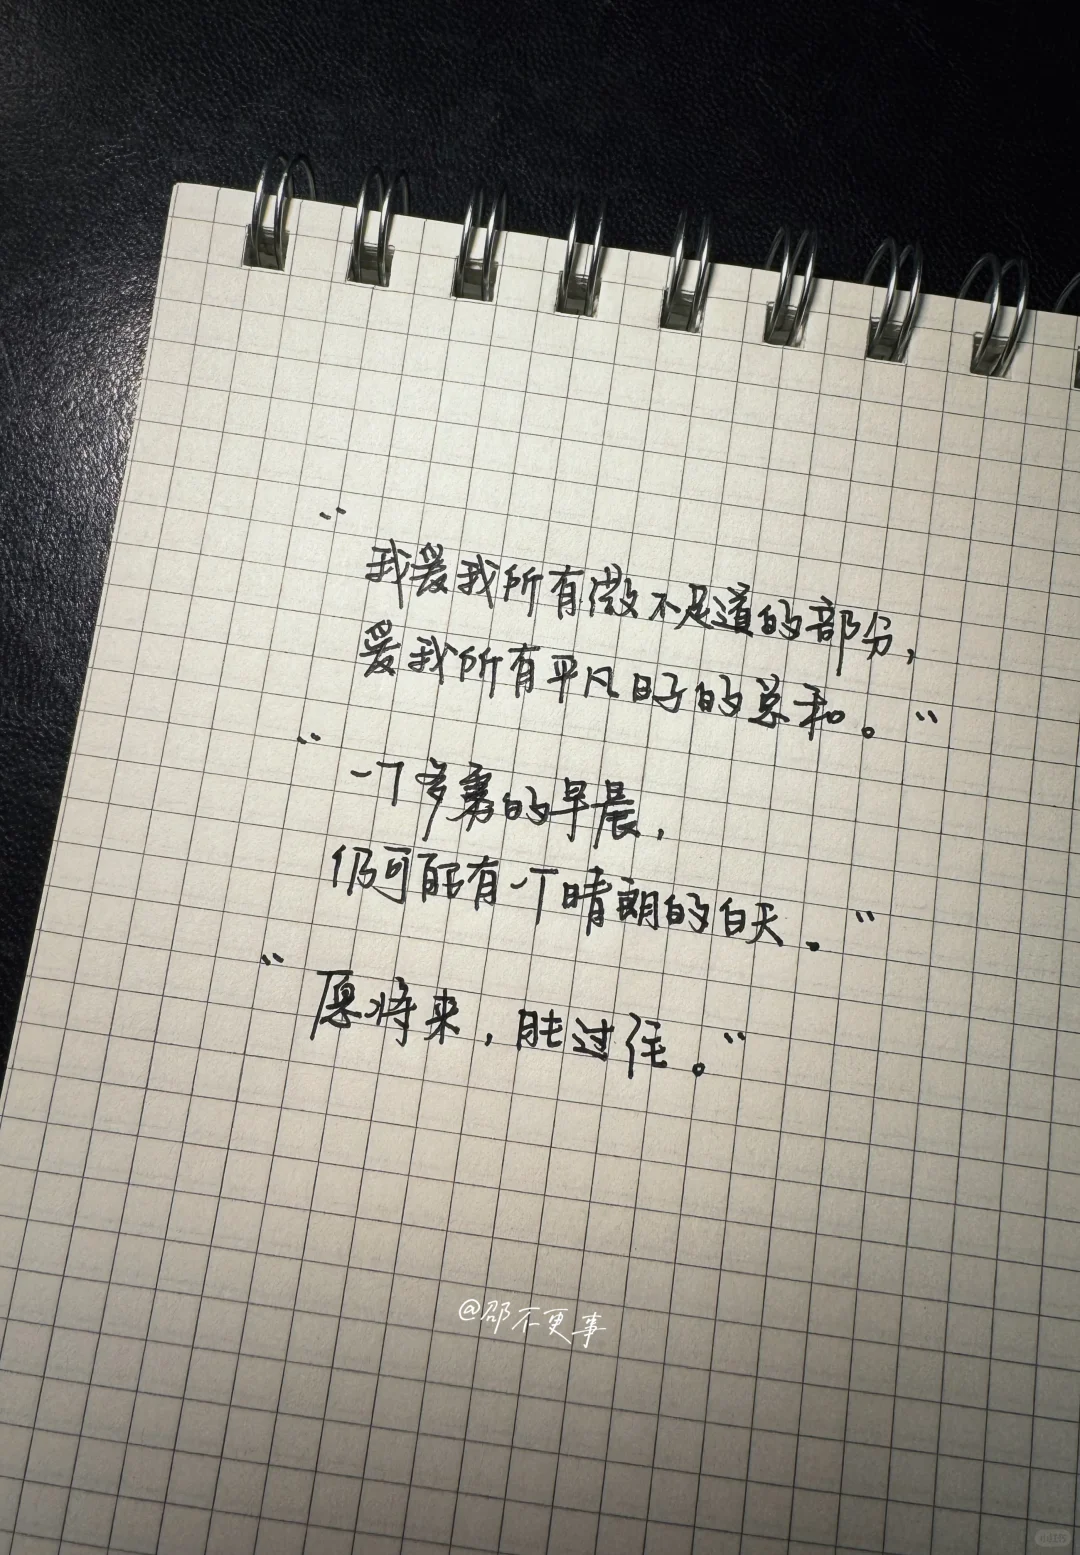 “我爱我所有微不足道的部分，
爱我所有平凡日子的总和。”
“一个多雾的早晨，
仍可能有一个晴朗的白天。”
“愿将来，胜过往。”
@邵不更事
小红书